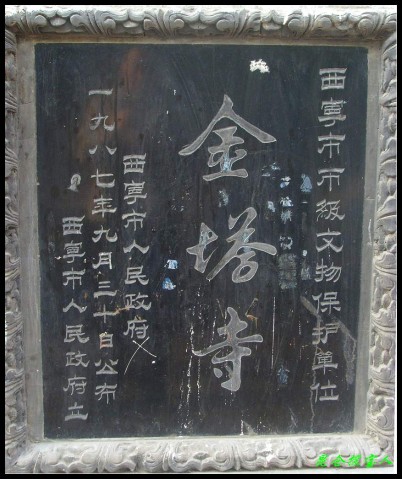 西寧市市級文物保护单位
金塔寺
西寧市人民政府
一九八七年九月三十日公布
西寧市人民政府立